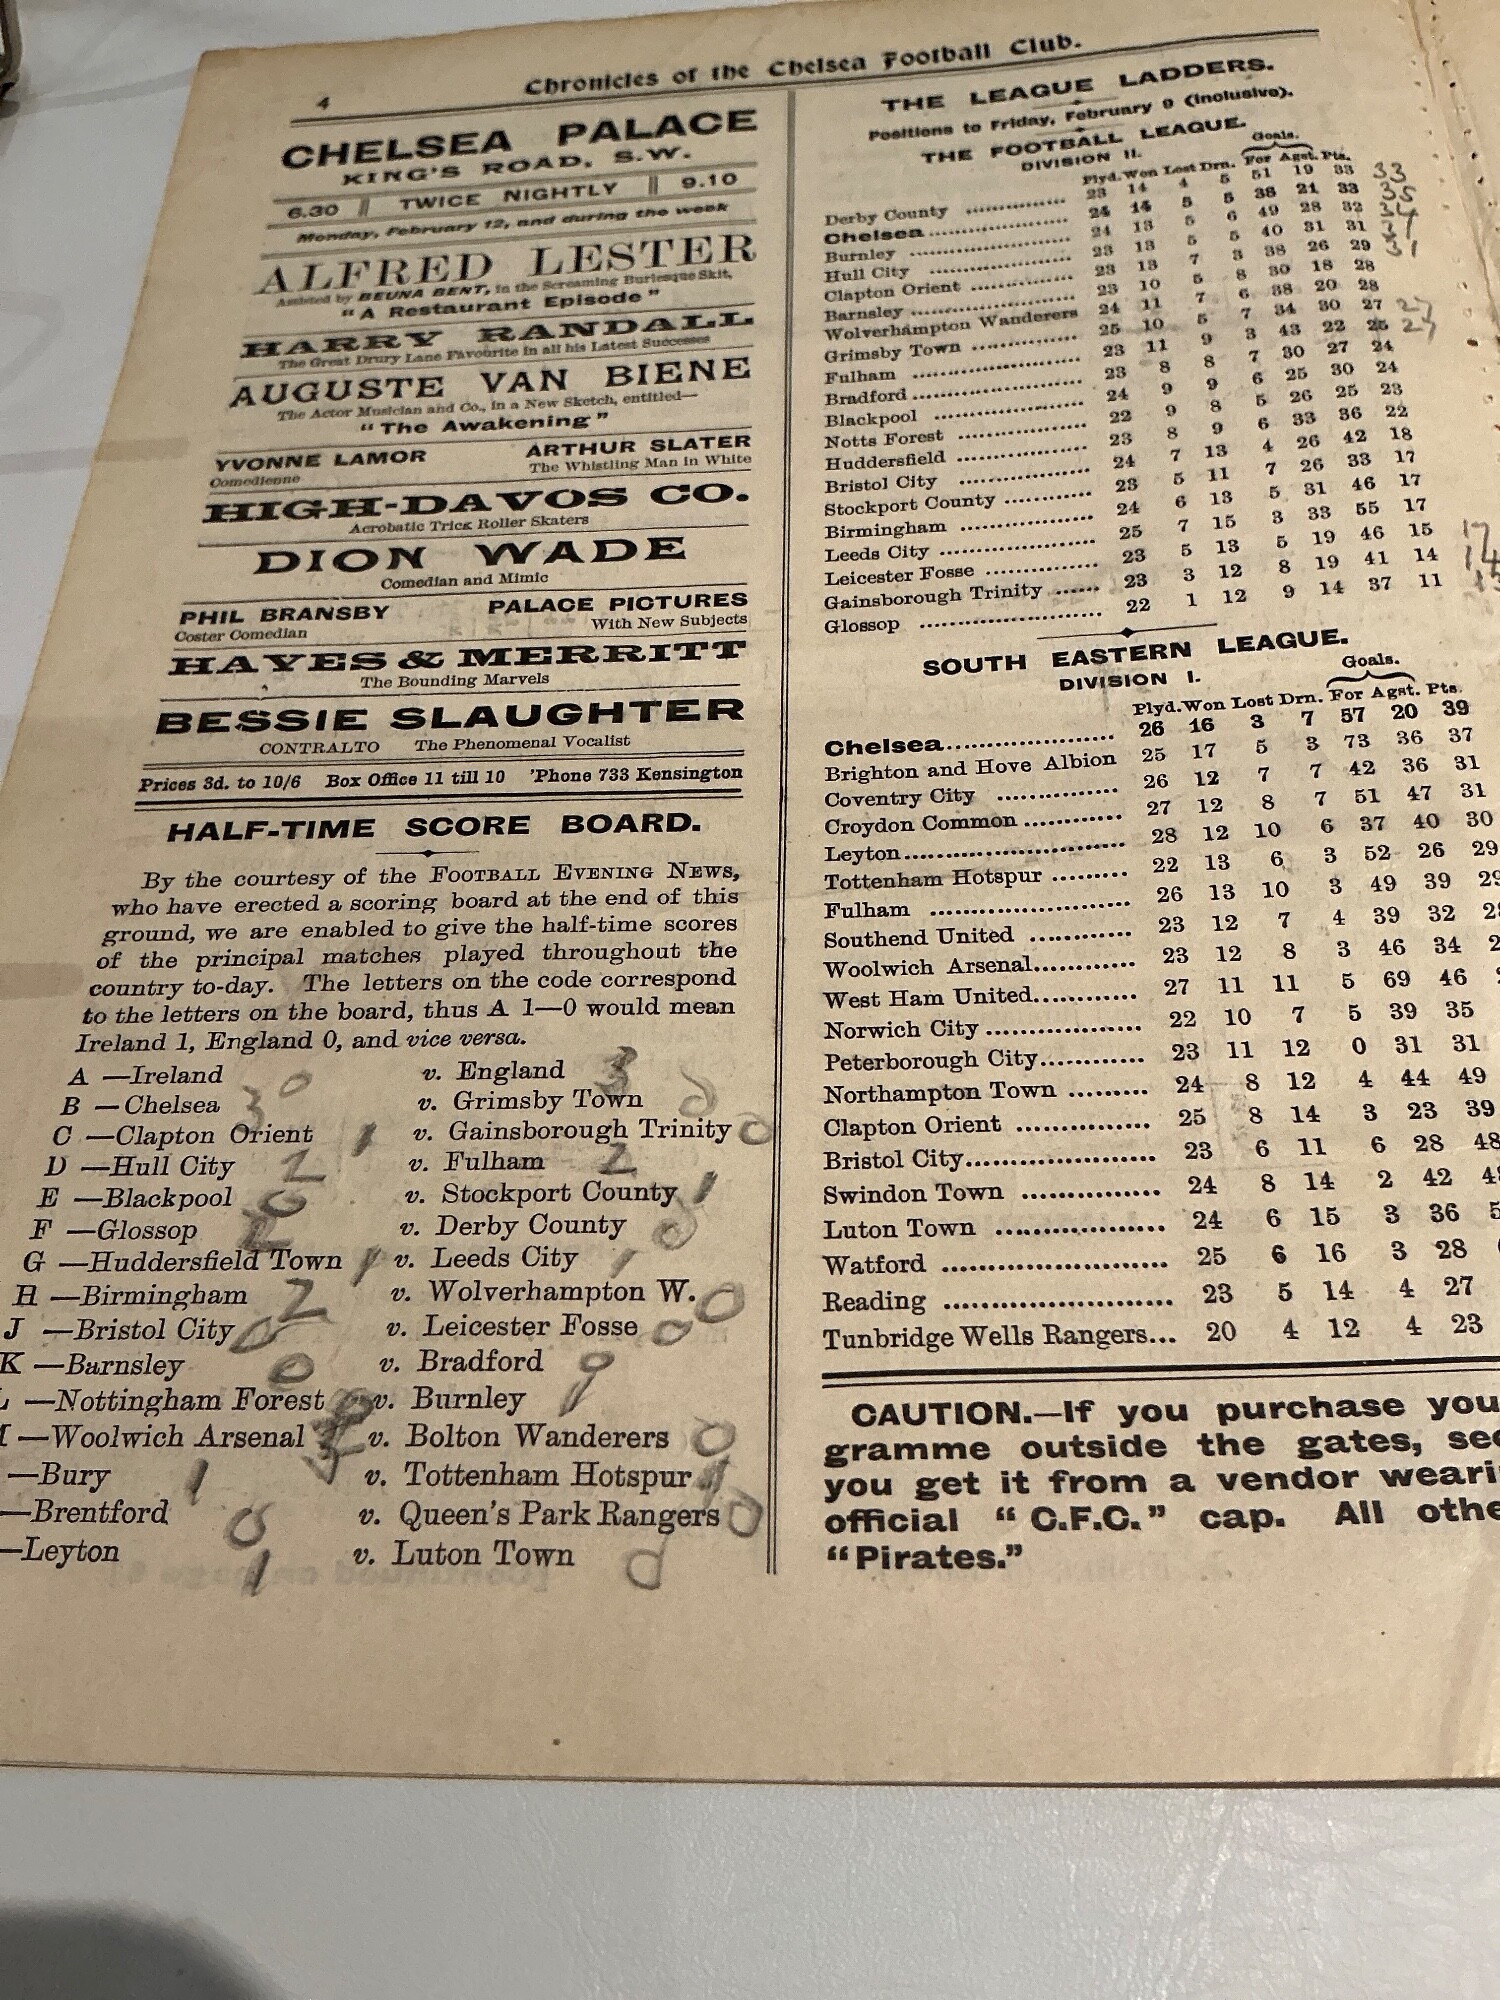 4
Chronicles of the Chelsea Football Club.
CHELSEA PALACE
KING'S ROAD, S.W.
6.30 || TWICE NIGHTLY || 9.10
Monday, February 12, and during the week
ALFRED LESTER
Assisted by BEUNA BENT, in the Screaming Burlesque Skit,
"A Restaurant Episode"
HARRY RANDALL
The Great Drury Lane Favourite in all his Latest Successes
AUGUSTE VAN BIENE
The Actor Musician and Co., in a New Sketch, entitled—
"The Awakening"
YVONNE LAMOR ARTHUR SLATER
Comedienne The Whistling Man in White
HIGH-DAVOS CO.
Acrobatic Trick Roller Skaters
DION WADE
Comedian and Mimic
PHIL BRANSBY PALACE PICTURES
Coster Comedian With New Subjects
HAYES & MERRITT
The Bounding Marvels
BESSIE SLAUGHTER
CONTRALTO The Phenomenal Vocalist
Prices 3d. to 10/6 Box Office 11 till 10 'Phone 733 Kensington
HALF-TIME SCORE BOARD.
By the courtesy of the FOOTBALL EVENING NEWS,
who have erected a scoring board at the end of this
ground, we are enabled to give the half-time scores
of the principal matches played throughout the
country to-day. The letters on the code correspond
to the letters on the board, thus A 1—0 would mean
Ireland 1, England 0, and vice versa.
A —Ireland 0 v. England 3
B —Chelsea 3 v. Grimsby Town 0
C —Clapton Orient 1 v. Gainsborough Trinity 0
D —Hull City 2 v. Fulham 2
E —Blackpool 0 v. Stockport County 1
F —Glossop v. Derby County
G —Huddersfield Town 1 v. Leeds City 1
H —Birmingham 2 v. Wolverhampton W. 0
J —Bristol City 0 v. Leicester Fosse 0
K —Barnsley 0 v. Bradford 0
—Nottingham Forest v. Burnley
—Woolwich Arsenal v. Bolton Wanderers 0
—Bury 1 v. Tottenham Hotspur
—Brentford 0 v. Queen's Park Rangers 0
—Leyton 1 v. Luton Town 0
THE LEAGUE LADDERS.
Positions to Friday, February 9 (inclusive).
THE FOOTBALL LEAGUE.
DIVISION II.
Goals.
Plyd. Won Lost Drn. For Agst. Pts.
Derby County 23 14 4 5 51 19 33 33
Chelsea 24 14 5 5 38 21 33 35
Burnley 24 13 5 6 49 28 32 34
Hull City 23 13 5 5 40 31 31
Clapton Orient 23 13 7 3 38 26 29 31
Barnsley 23 10 5 8 30 18 28
Wolverhampton Wanderers 24 11 7 6 38 20 28
Grimsby Town 25 10 5 7 34 30 27 27
Fulham 23 11 9 3 43 22 25
Bradford 23 8 8 7 30 27 24
Blackpool 24 9 9 6 25 30 24
Notts Forest 22 9 8 5 26 25 23
Huddersfield 23 8 9 6 33 36 22
Bristol City 24 7 13 4 26 42 18
Stockport County 23 5 11 7 26 33 17
Birmingham 24 6 13 5 31 46 17
Leeds City 25 7 15 3 33 55 17
Leicester Fosse 23 5 13 5 19 46 15 17
Gainsborough Trinity 23 3 12 8 19 41 14 14
Glossop 22 1 12 9 14 37 11
SOUTH EASTERN LEAGUE.
DIVISION I.
Goals.
Plyd. Won Lost Drn. For Agst. Pts.
Chelsea 26 16 3 7 57 20 39
Brighton and Hove Albion 25 17 5 3 73 36 37
Coventry City 26 12 7 7 42 36 31
Croydon Common 27 12 8 7 51 47 31
Leyton 28 12 10 6 37 40 30
Tottenham Hotspur 22 13 6 3 52 26 29
Fulham 26 13 10 3 49 39 29
Southend United 23 12 7 4 39 32
Woolwich Arsenal 23 12 8 3 46 34
West Ham United 27 11 11 5 69 46
Norwich City 22 10 7 5 39 35
Peterborough City 23 11 12 0 31 31
Northampton Town 24 8 12 4 44 49
Clapton Orient 25 8 14 3 23 39
Bristol City 23 6 11 6 28 48
Swindon Town 24 8 14 2 42
Luton Town 24 6 15 3 36
Watford 25 6 16 3 28
Reading 23 5 14 4 27
Tunbridge Wells Rangers... 20 4 12 4 23
CAUTION.—If you purchase you
gramme outside the gates, see
you get it from a vendor weari
official "C.F.C." cap. All othe
"Pirates."